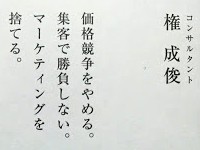 コンサルタント
権 成俊
価格競争をやめる。
集客で勝負しない。
マーケティングを
捨てる。